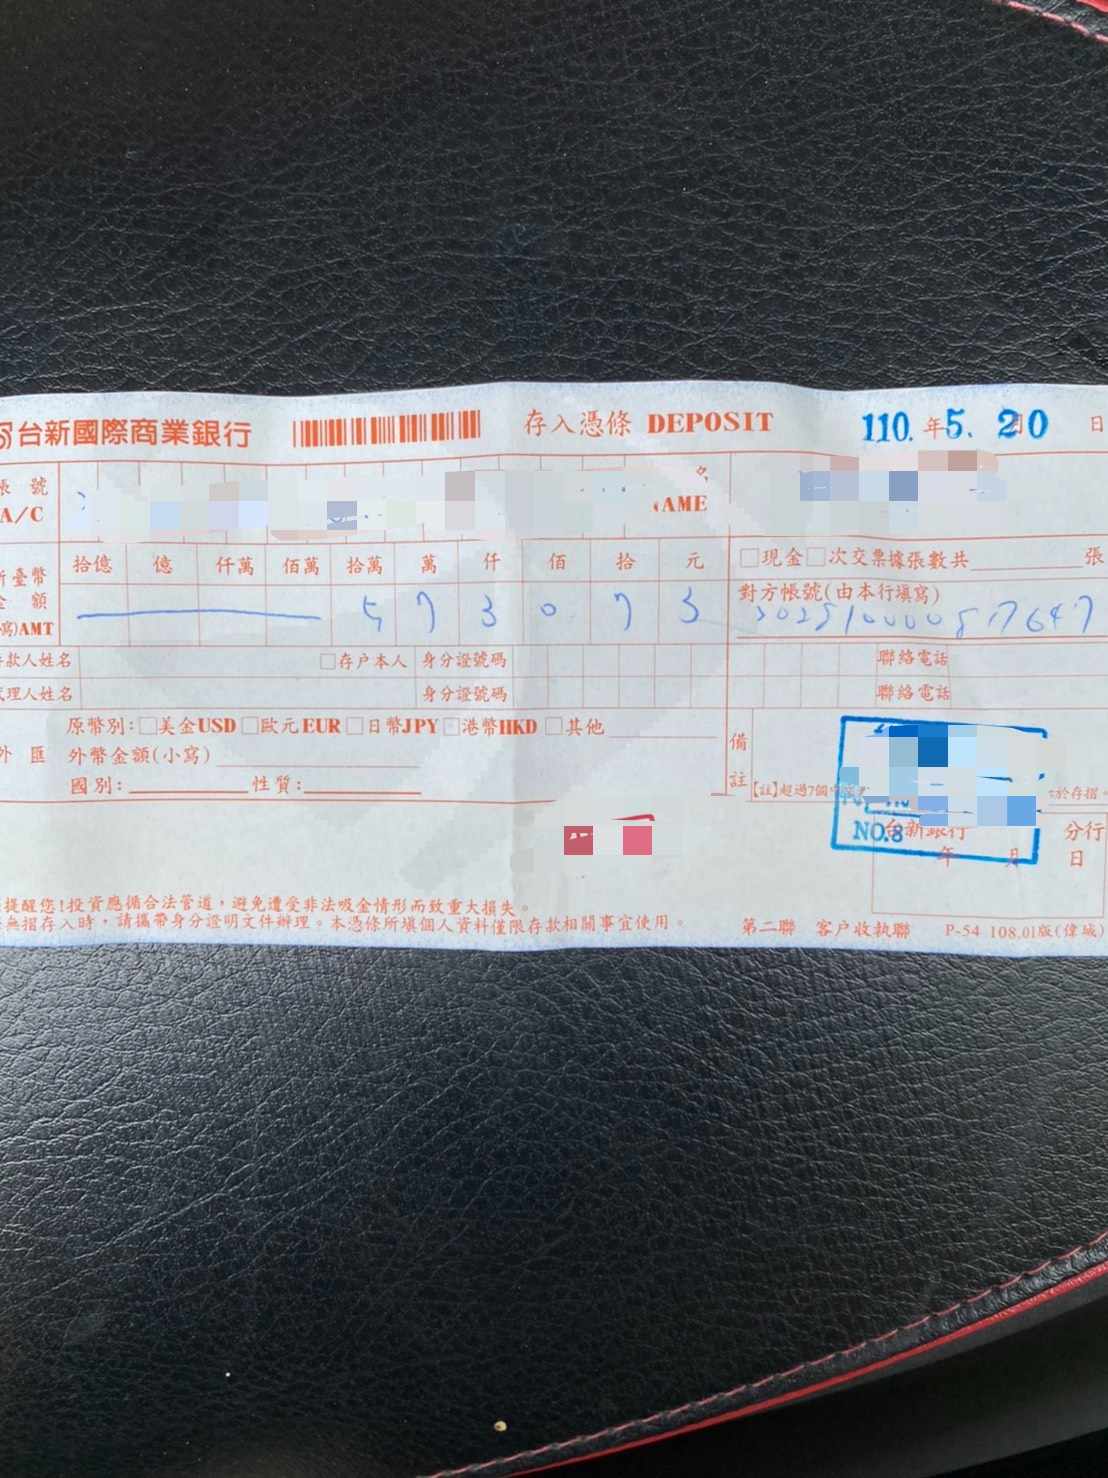 台新國際商業銀行 存入憑條 DEPOSIT 110. 年 5. 20 日
帳號
A/C
AME
拾億 億 仟萬 佰萬 拾萬 萬 仟 佰 拾 元
573073
新臺幣
金額
寫)AMT
□現金□次交票據張數共 張
對方帳號(由本行填寫)
款人姓名 □存戶本人 身分證號碼 聯絡電話
理人姓名 身分證號碼 聯絡電話
外匯
原幣別:□美金USD□歐元EUR□日幣JPY□港幣HKD□其他
外幣金額(小寫)
國別: 性質:
備註
【註】超過7個
於存摺。
NO.8
台新銀行 分行
年 月 日
提醒您!投資應循合法管道,避免遭受非法吸金情形而致重大損失。
無摺存入時,請攜帶身分證明文件辦理。本憑條所填個人資料僅限存款相關事宜使用。
第二聯 客戶收執聯 P-54 108.01版(偉城)